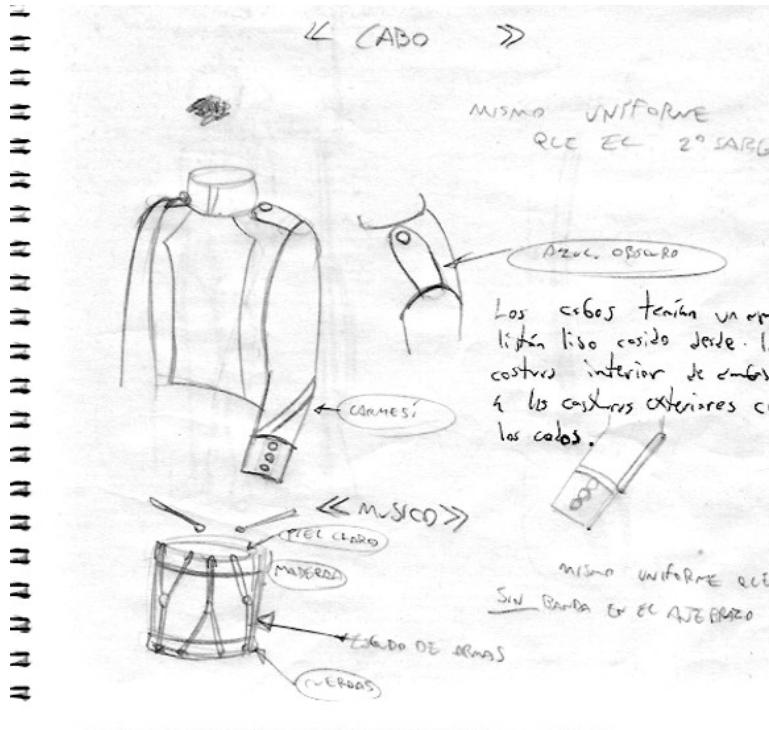 << CABO >>
MISMO UNIFORME
QUE EL 2º SARG
AZUL OBSCURO
Los cabos tenían un
listón liso cosido desde
costura interior de ambas
a las costuras exteriores
los codos.
CARMESÍ
<< MUSICO >>
PIEL CLARO
MADERA
MISMO UNIFORME QUE
SIN BANDA EN EL ANTEBRAZO
ESCUDO DE ARMAS
CUERDAS